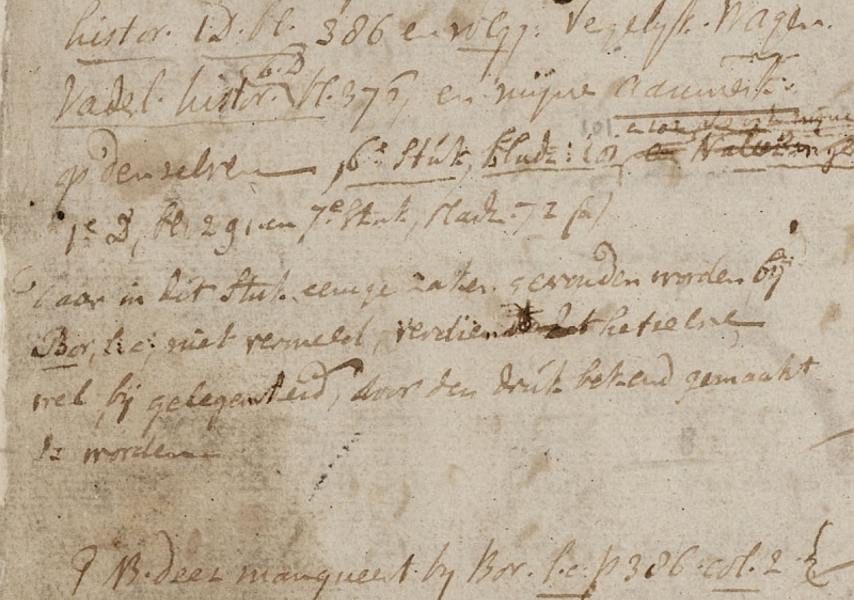 histor. 1. D. bl. 386 en volgg. Vergelijk. Wagen.
6. D
Vadel. histor. bl. 375, en mijne aanmerk:
101
op denselven 6e Stuk, bladz: 101
1e D, bl. 291. en 7e Stuk, bladz. 72
daar in dit Stuk eenige zaken gevonden worden bij
Bor, l.c; niet vermeld, verdient hetzelve
wel bij gelegenheid, door den druk bekend gemaakt
te worden
NB. deez manqueert by Bor. l.c. p 386. col. 2